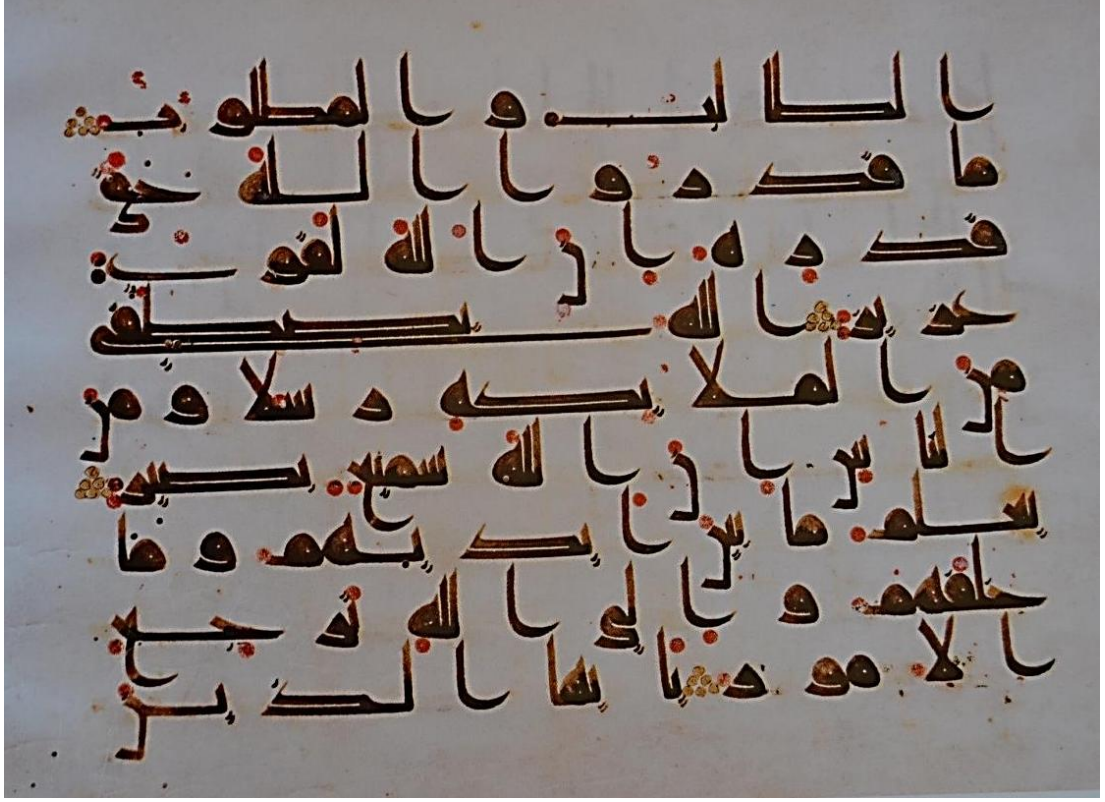 الطالب والمطلوب
ما قدروا الله حق
قدره إن الله لقوي
عزيز الله يصطفي
من الملئكة رسلا ومن
الناس إن الله سميع بصير
يعلم ما بين أيديهم وما
خلفهم وإلى الله ترجع
الأمور يأيها الذين